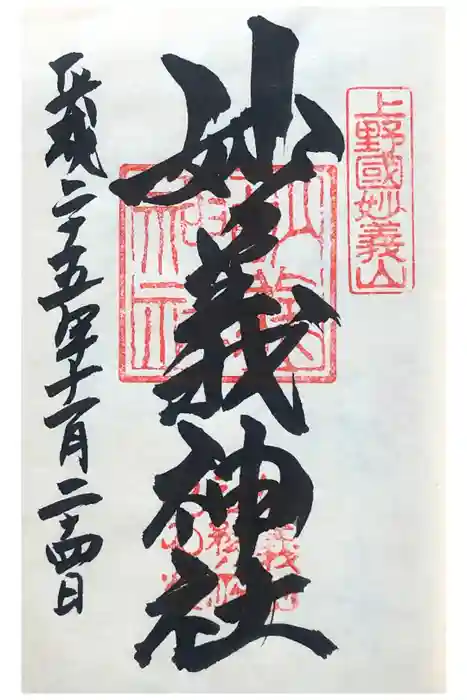 上野國妙義山
妙義神社
平成二十五年十一月二十四日